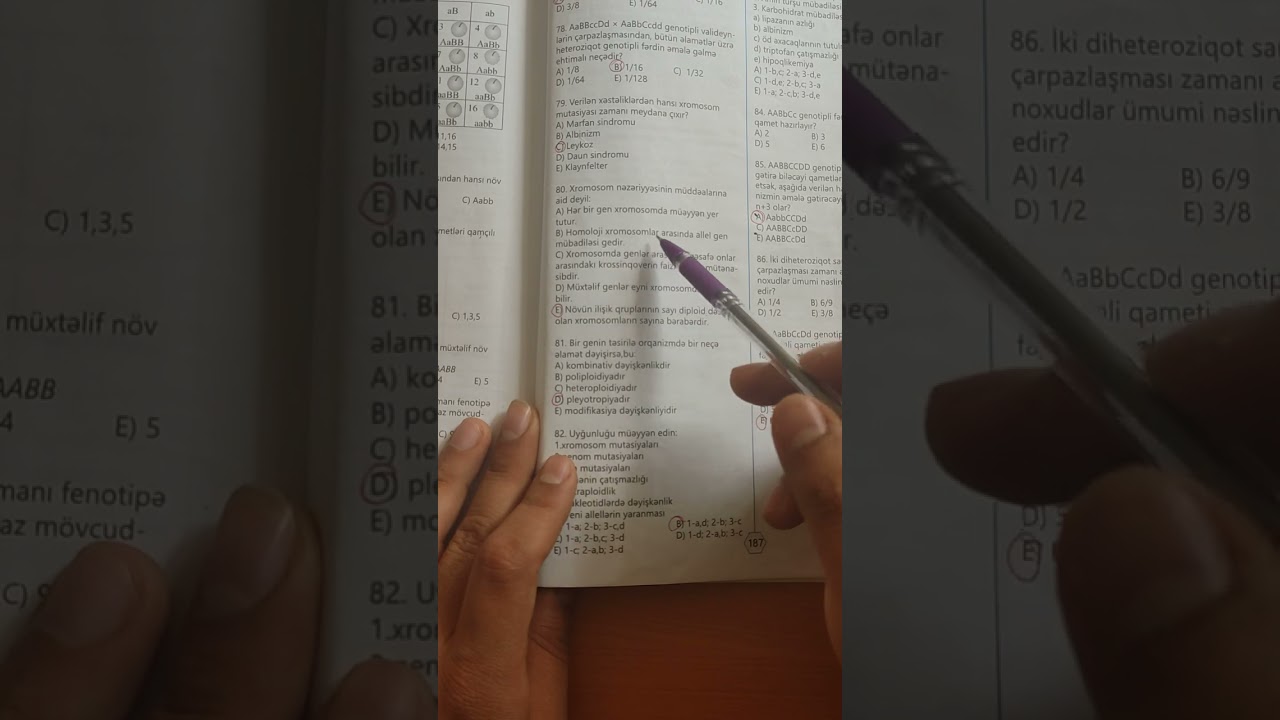 aB ab
3 4
AaBB AaBb
7 8
AaBb Aabb
12
aaBB aaBb
16
aabb
1,16
14,15
sından hansı növ
C) Aabb
metləri qamçılı
C) 1,3,5
müxtəlif növ
AABB
4 E) 5
manı fenotipə
az mövcud-
D) 3/8 E) 1/64
78. AaBBccDd × AaBbCcdd genotipli valideyn-
lərin çarpazlaşmasından, bütün əlamətlər üzrə
heteroziqot genotipli fərdin əmələ gəlmə
ehtimalı neçədir?
A) 1/8 B) 1/16 C) 1/32
D) 1/64 E) 1/128
79. Verilən xəstəliklərdən hansı xromosom
mutasiyası zamanı meydana çıxır?
A) Marfan sindromu
B) Albinizm
C) Leykoz
D) Daun sindromu
E) Klaynfelter
80. Xromosom nəzəriyyəsinin müddəalarına
aid deyil:
A) Hər bir gen xromosomda müəyyən yer
tutur.
B) Homoloji xromosomlar arasında allel gen
mübadiləsi gedir.
C) Xromosomda genlər məsafə onlar
arasındakı krossinqoverin faizi mütəna-
sibdir.
D) Müxtəlif genlər eyni xromosomda
bilir.
E) Növün ilişik qruplarının sayı diploid
olan xromosomların sayına bərabərdir.
81. Bir genin təsirilə orqanizmdə bir neçə
əlamət dəyişirsə,bu:
A) kombinativ dəyişkənlikdir
B) poliploidiyadır
C) heteroploidiyadır
D) pleyotropiyadır
E) modifikasiya dəyişkənliyidir
82. Uyğunluğu müəyyən edin:
1.xromosom mutasiyaları
genom mutasiyaları
mutasiyaları
çatışmazlığı
dəyişkənlik
allellərin yaranması
1-a; 2-b; 3-c,d B) 1-a,d; 2-b; 3-c
1-a; 2-b,c; 3-d D) 1-d; 2-a,b; 3-c
E) 1-c; 2-a,b; 3-d
187
3. Karbohidrat mübadiləs
a) lipazanın azlığı
b) albinizm
c) öd axacaqlarının tutul
d) triptofan çatışmazlığı
e) hipoqlikemiya
A) 1-b,c; 2-a; 3-d,e
C) 1-d,e; 2-b,c; 3-a
E) 1-a; 2-c,b; 3-d,e
84. AABbCc genotipli fə
qamet hazırlayır?
A) 2 B) 3
D) 5 E) 6
85. AABBCCDD genotip
gətirə biləcəyi qametlər
etsək, aşağıda verilən h
nizmin əmələ gətirəcəyi
n+3 olar?
A) AabbCCDd
C) AABBCcDD
E) AABBCcDd
86. İki diheteroziqot sa
çarpazlaşması zamanı ə
noxudlar ümumi nəslin
edir?
A) 1/4 B) 6/9
D) 1/2 E) 3/8
AaBbCcDd genotip
qameti